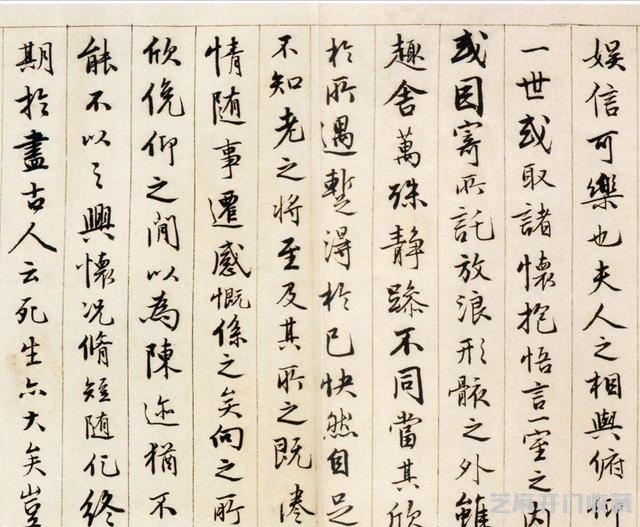 娱信可樂也夫人之相與俯仰
一世或取諸懷抱悟言一室之内
或因寄所託放浪形骸之外雖
趣舍萬殊静躁不同當其欣
於所遇蹔得於己快然自足
不知老之将至及其所之既惓
情随事遷感慨係之矣向之所
欣俛仰之閒以為陳迹猶不
能不以之興懷况脩短随化終
期於盡古人云死生亦大矣豈
芝麻开门收藏